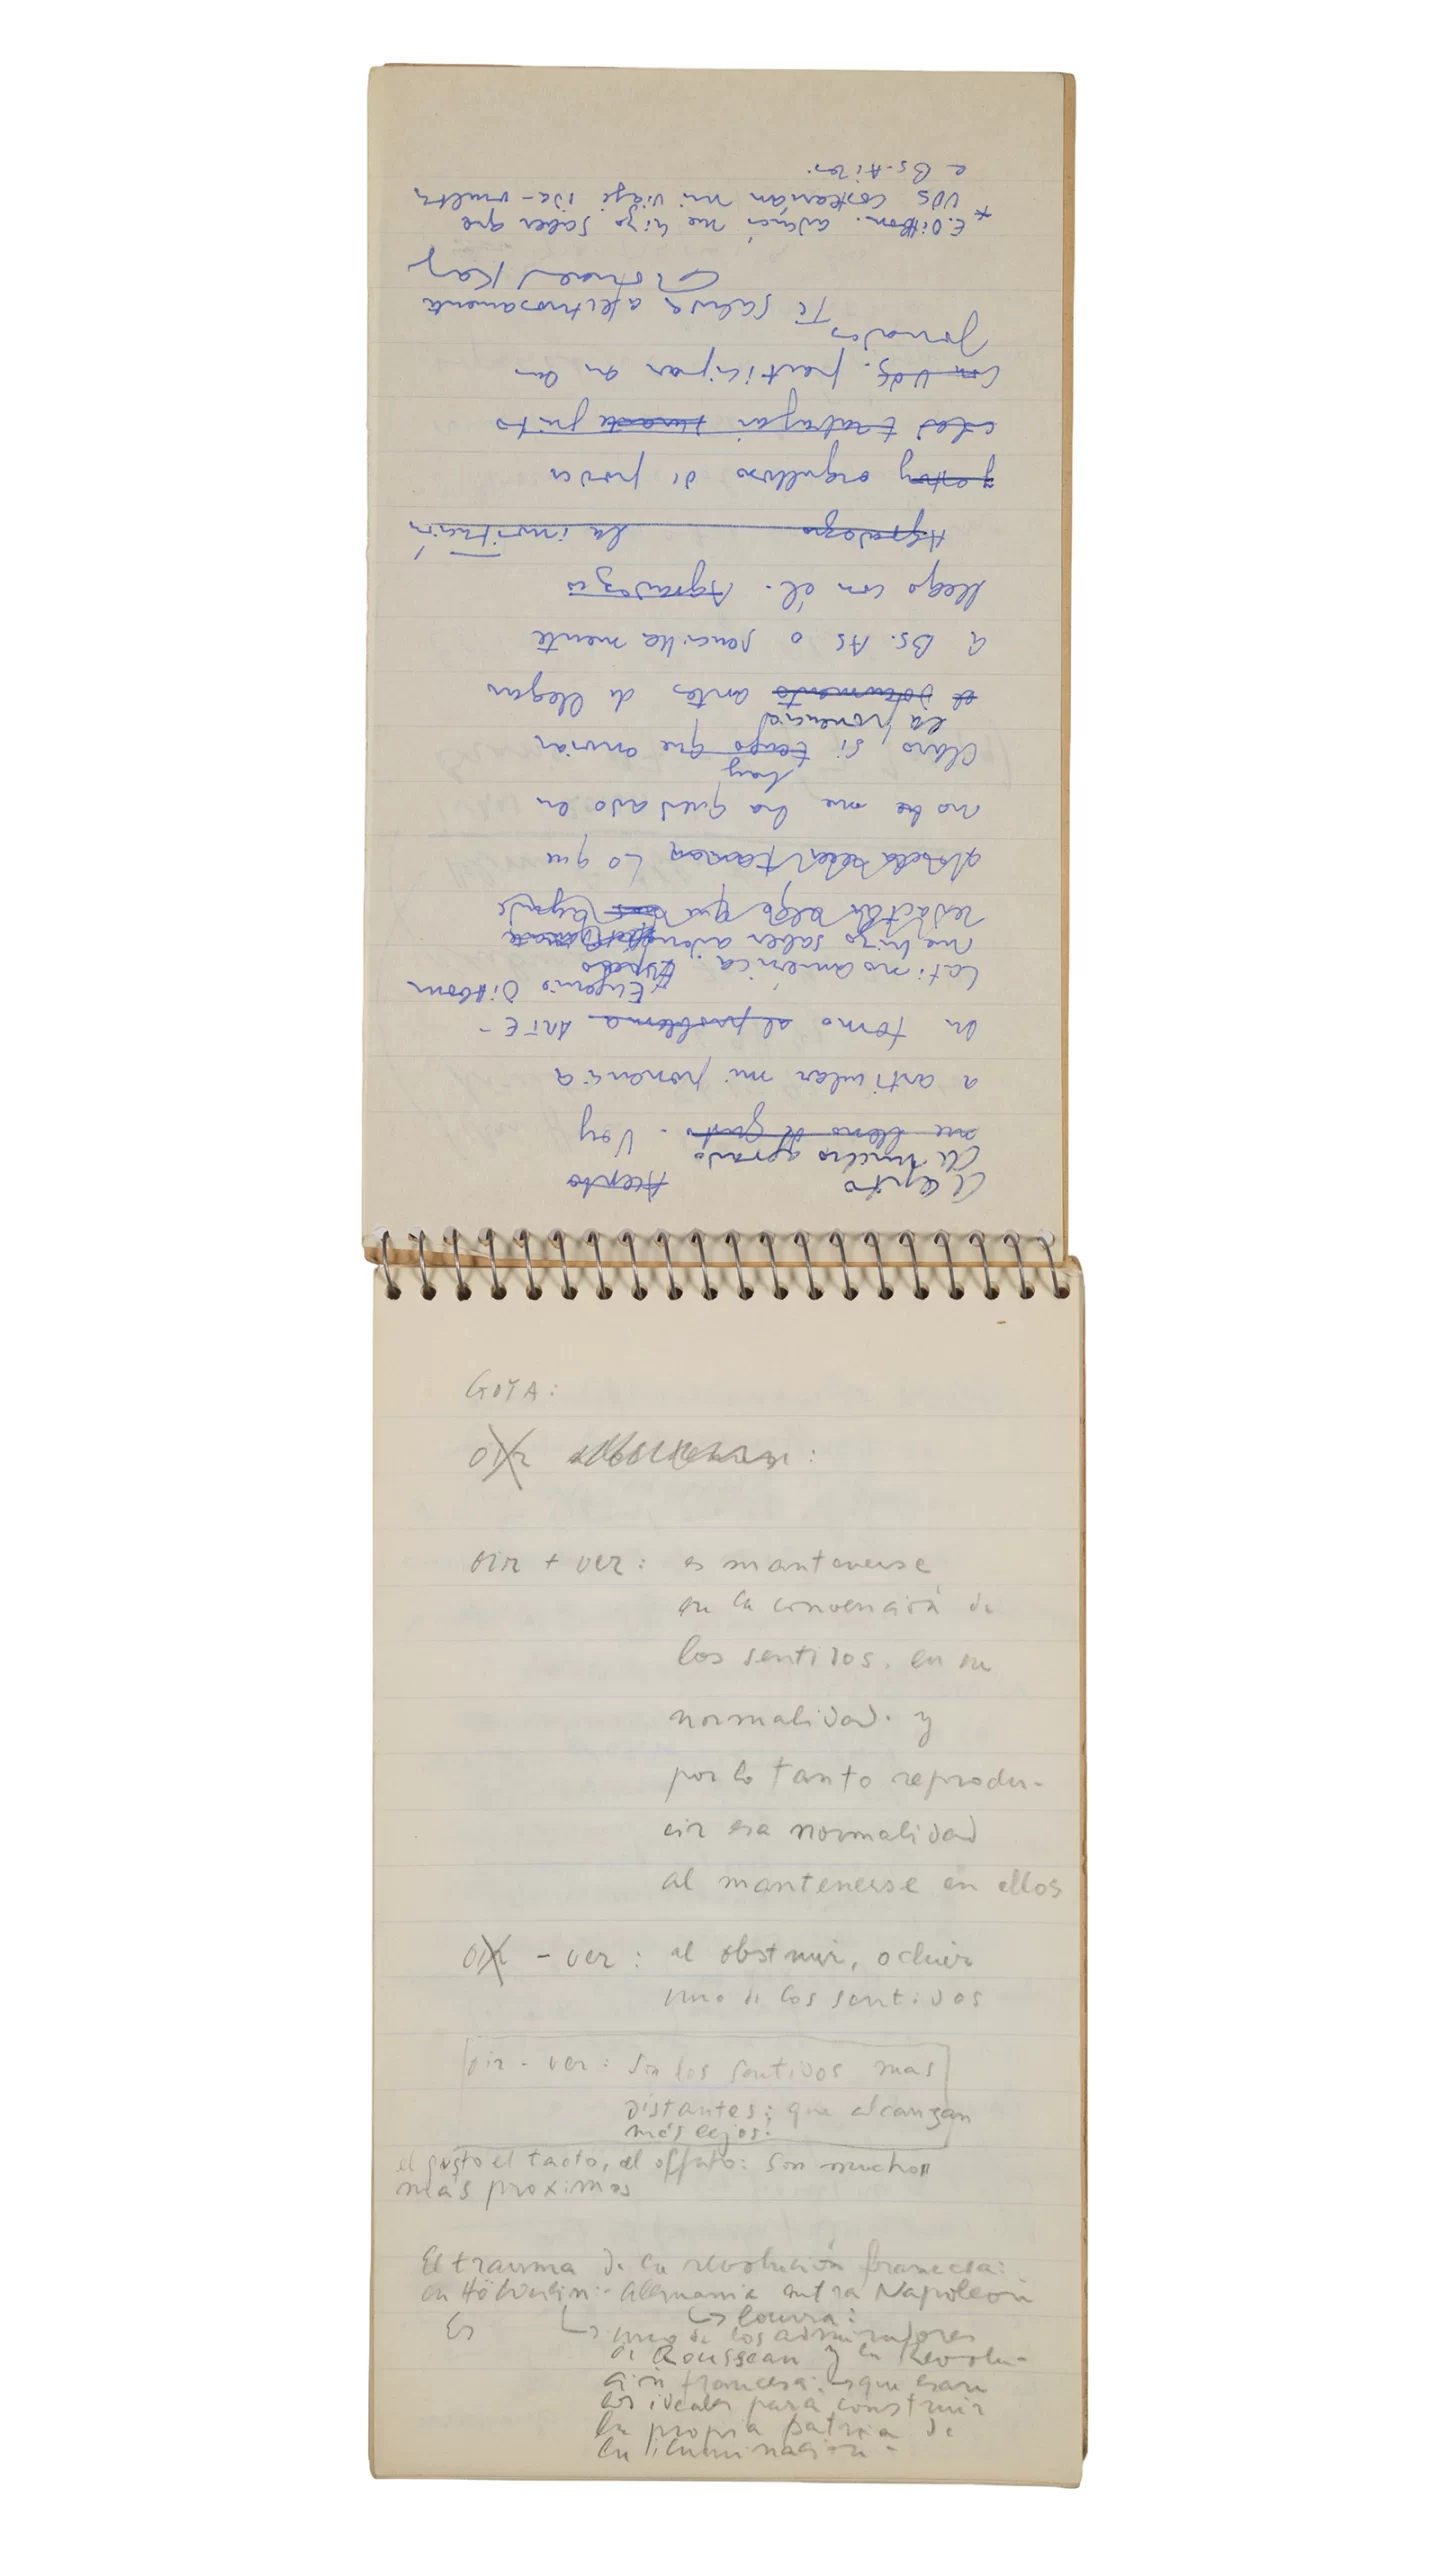 Acepto Acepto
de mucho agrado
me lleno de gusto. Voy
a articular mi ponencia
en torno al problema ARTE-
Eugenio Dittborn
Latinoamérica. Espero
me hizo saber además
redactar algo que ayude
Lo que
no me ha quedado en
hay
claro, si tengo que enviar
la ponencia
el documento antes de llegar
a Bs. As o sencillamente
llego con él. Agradezco
Agradezco la invitación
y estoy orgulloso de poder
trabajar junto
con Uds. participar en
Jornadas
Te saluda afectuosamente
Ronald Kay
* E. Dittborn. además me hizo saber que
UDS costearían mi viaje ida-vuelta
a Bs. Aires.
GOYA:
OIR :
oir + ver: es mantenerse
en la convención de
los sentidos, en su
normalidad. y
por lo tanto reprodu-
cir esa normalidad
al mantenerse en ellos
OIR - ver: al obstruir, ocluir
uno de los sentidos
oir - ver: son los sentidos mas
distantes; que alcanzan
más lejos:
el gusto el tacto, el olfato: son mucho
más proximos
El trauma de la revolución francesa:
en Hölderlin: Alemania entra Napoleón
Es ↳ ↳ locura:
uno de los admiradores
de Rousseau y la Revolu-
ción francesa: que eran
los ideales para construir
la propia patria de
la iluminación-